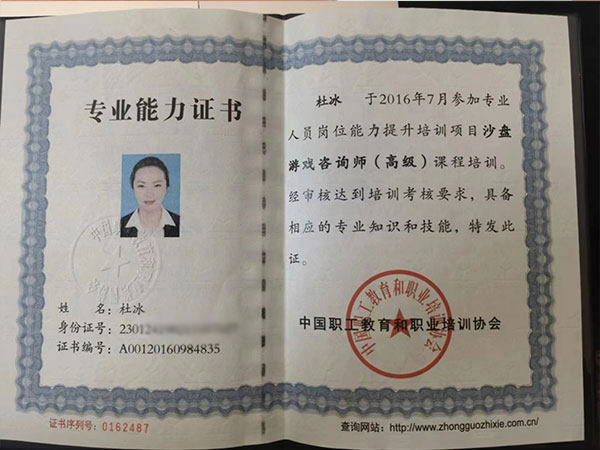 专业能力证书
姓 名：杜冰
身份证号：23012
证书编号：A00120160984835
证书序列号：0162487
杜冰 于2016年7月参加专业
人员岗位能力提升培训项目沙盘
游戏咨询师（高级）课程培训。
经审核达到培训考核要求，具备
相应的专业知识和技能，特发此
证。
中国职工教育和职业培训协会
中国职工教育和职业培训协会
查询网站：http://www.zhongguozhixie.com.cn/